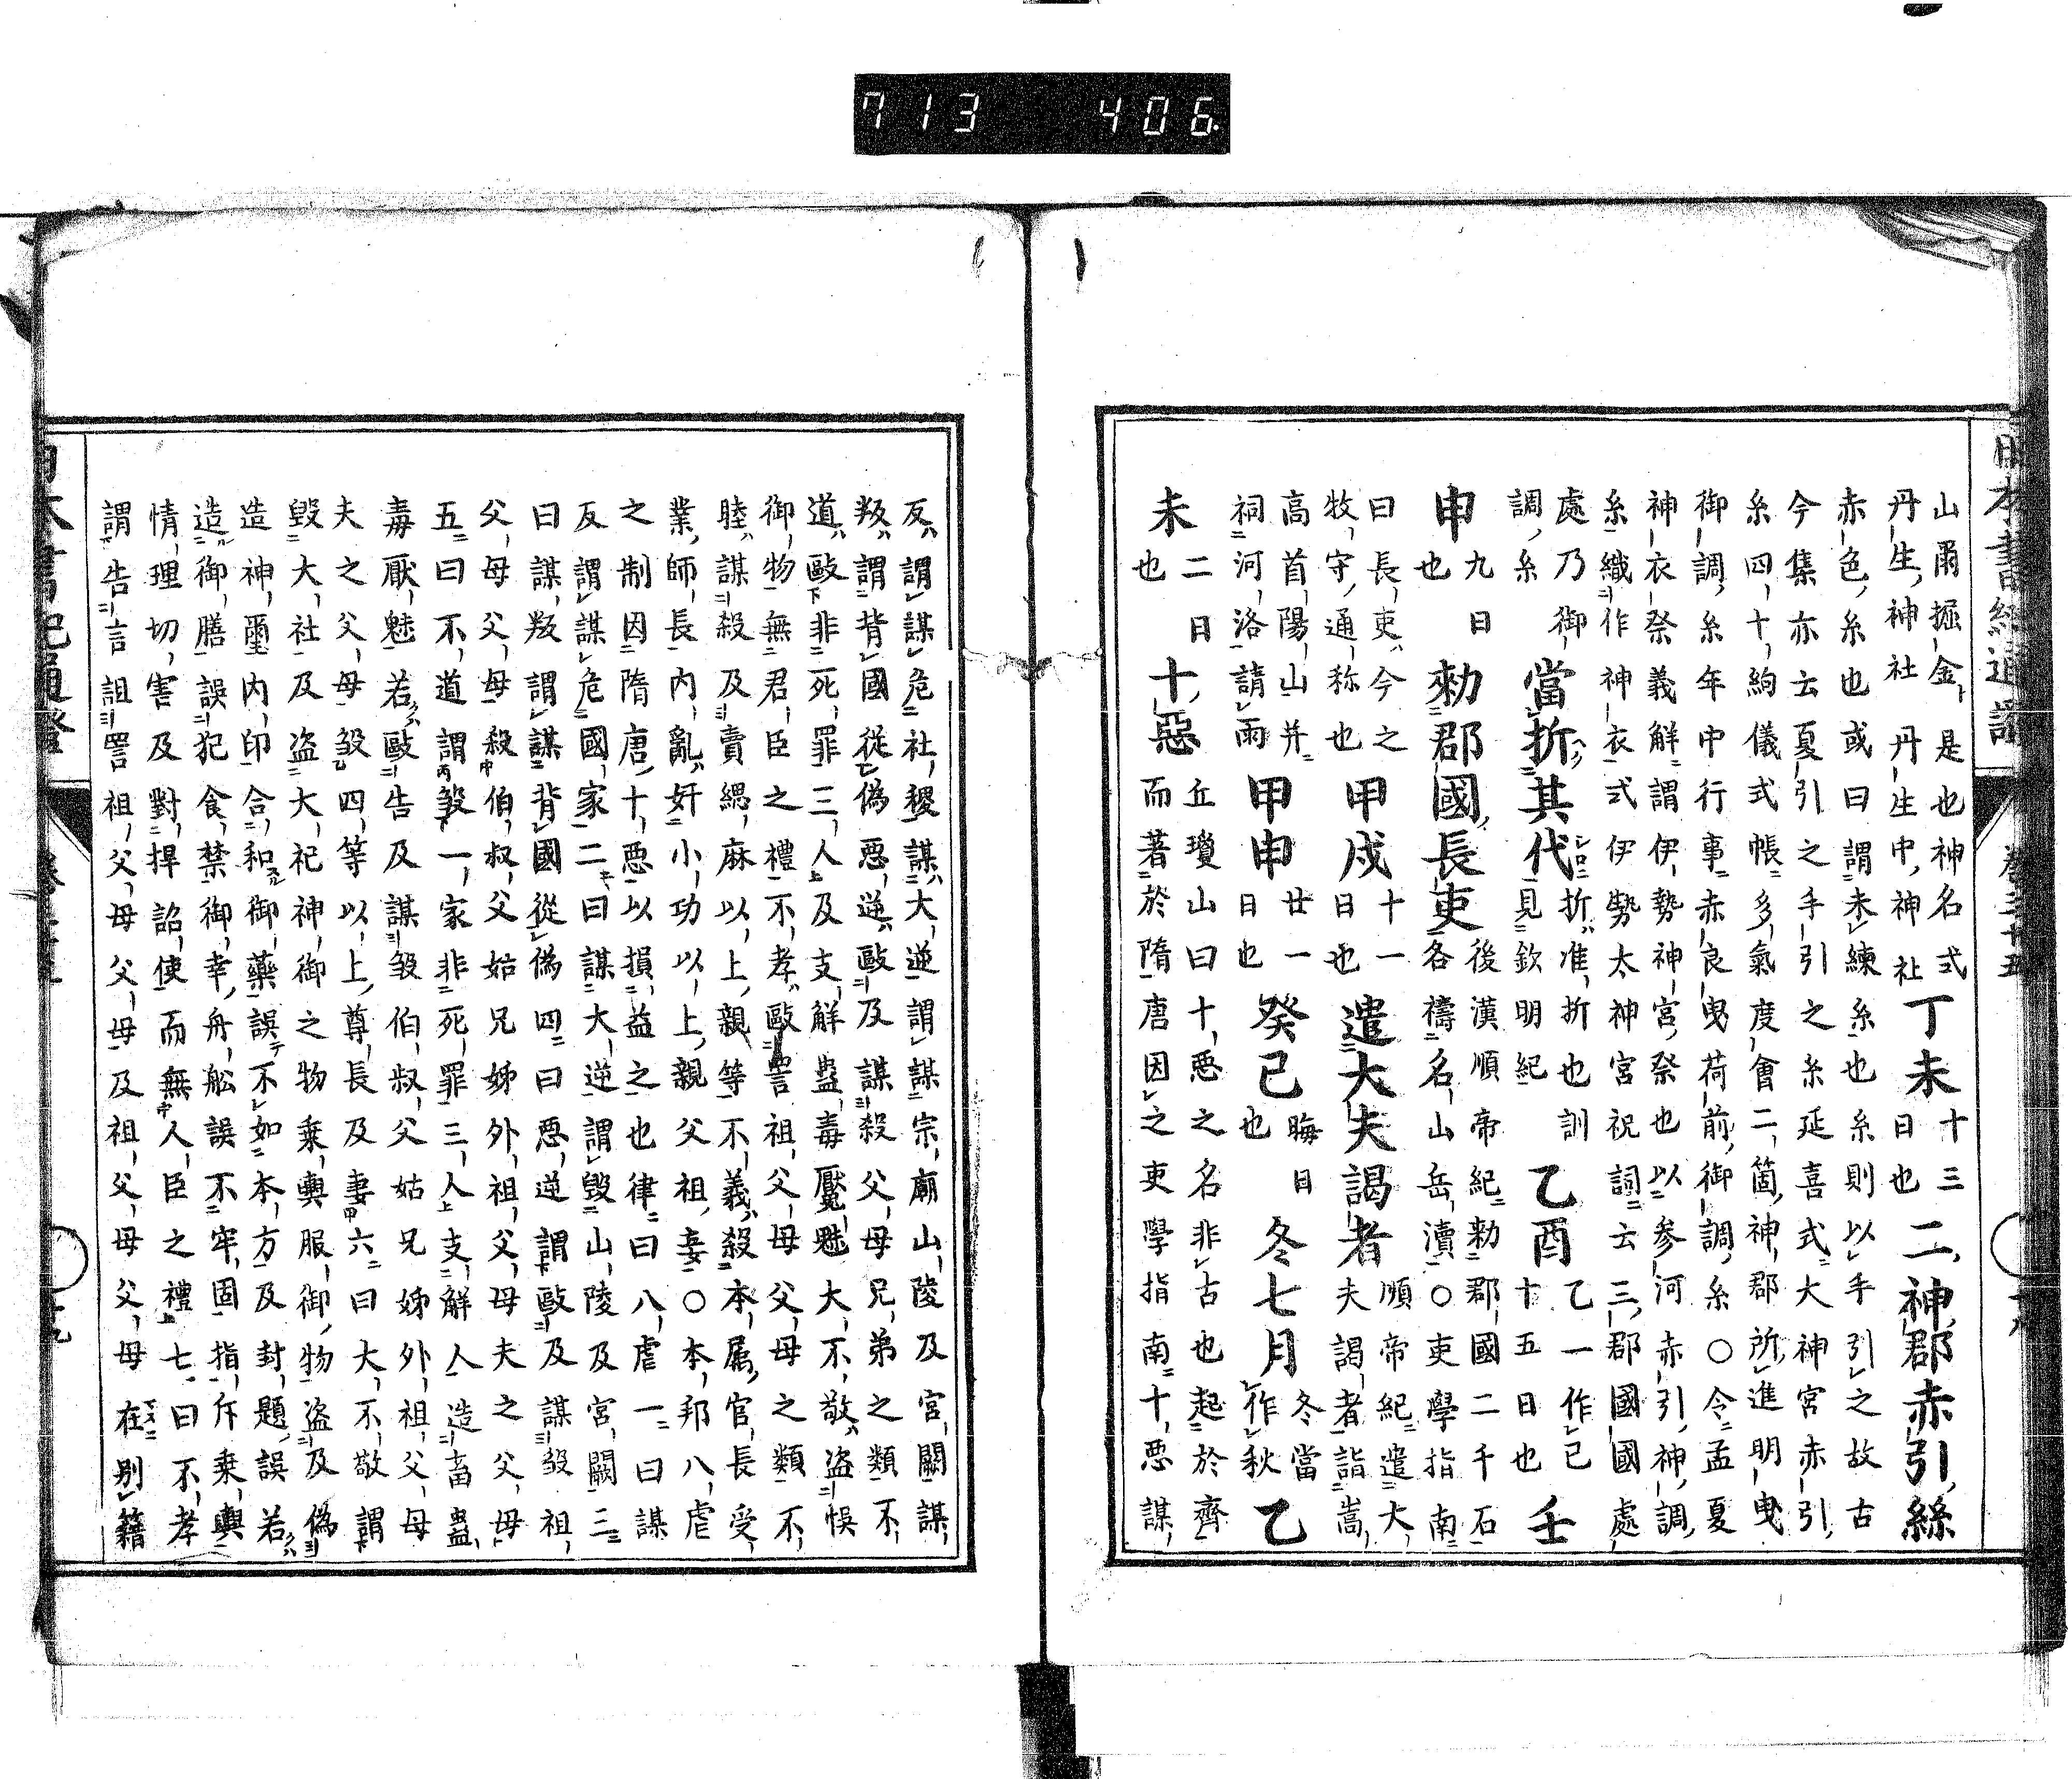 713 406
日本書紀通證 卷三十五 十八
山爾掘金是也神名式
丹生神社丹生中神社
丁未
十三
日也
二神郡赤引絲
赤色糸也或曰謂未練糸也糸則以手引之故古
今集亦云夏引之手引之糸延喜式大神宮赤引
糸四十絇儀式帳多氣度會二箇神郡所進明曳
御調糸年中行事赤良曳荷前御調糸○令孟夏
神衣祭義解謂伊勢神宮祭也以参河赤引神調
糸織作神衣式伊勢太神宮祝詞云三郡國國處
處乃御
調糸
當折其代
折准折也訓
見欽明紀
乙酉
乙一作已
十五日也
壬
申
九日
也
勅郡國長吏
後漢順帝紀勅郡國二千石
各禱名山岳瀆○吏學指南
曰長吏今之
牧守通称也
甲戌
十一
日也
遣大夫謁者
順帝紀遣大
夫謁者詣嵩
高首陽山并
祠河洛請雨
甲申
廿一
日也
癸巳
晦日
也
冬七月
冬當
作秋
乙
未
二日
也
十惡
丘瓊山曰十悪之名非古也起於齊
而著於隋唐因之吏學指南十悪謀
反謂謀危社稷謀大逆謂謀宗廟山陵及宮闕謀
叛謂背國從偽悪逆毆及謀殺父母兄弟之類不
道毆非死罪三人及支解蠱毒魘魅大不敬盗悞
御物無君臣之禮不孝毆詈祖父母父母之類不
睦謀殺及賣緦麻以上親等不義殺本属官長受
業師長内亂奸小功以上親父祖妾○本邦八虐
之制因隋唐十悪以損益之也律曰八虐一曰謀
反謂謀危國家二曰謀大逆謂毀山陵及宮闕三
曰謀叛謂謀背國從偽四曰悪逆謂毆及謀殺祖
父母父母殺伯叔父姑兄姊外祖父母夫之父母
五曰不道謂殺一家非死罪三人支解人造畜蠱
毒厭魅若毆告及謀殺伯叔父姑兄姊外祖父母
夫之父母殺四等以上尊長及妻六曰大不敬謂
毀大社及盗大祀神御之物乗輿服御物盗及偽
造神璽内印合和御藥誤不如本方及封題誤若
造御膳誤犯食禁御幸舟舩誤不牢固指斥乗輿
情理切害及對捍詔使而無人臣之禮七曰不孝
謂告言詛詈祖父母父母及祖父母父母在別籍